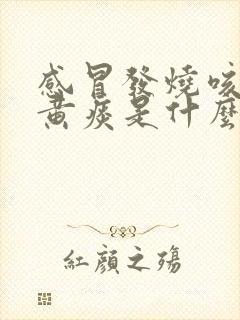 感冒發燒咳
黃痰是什麼
紅顏之殤